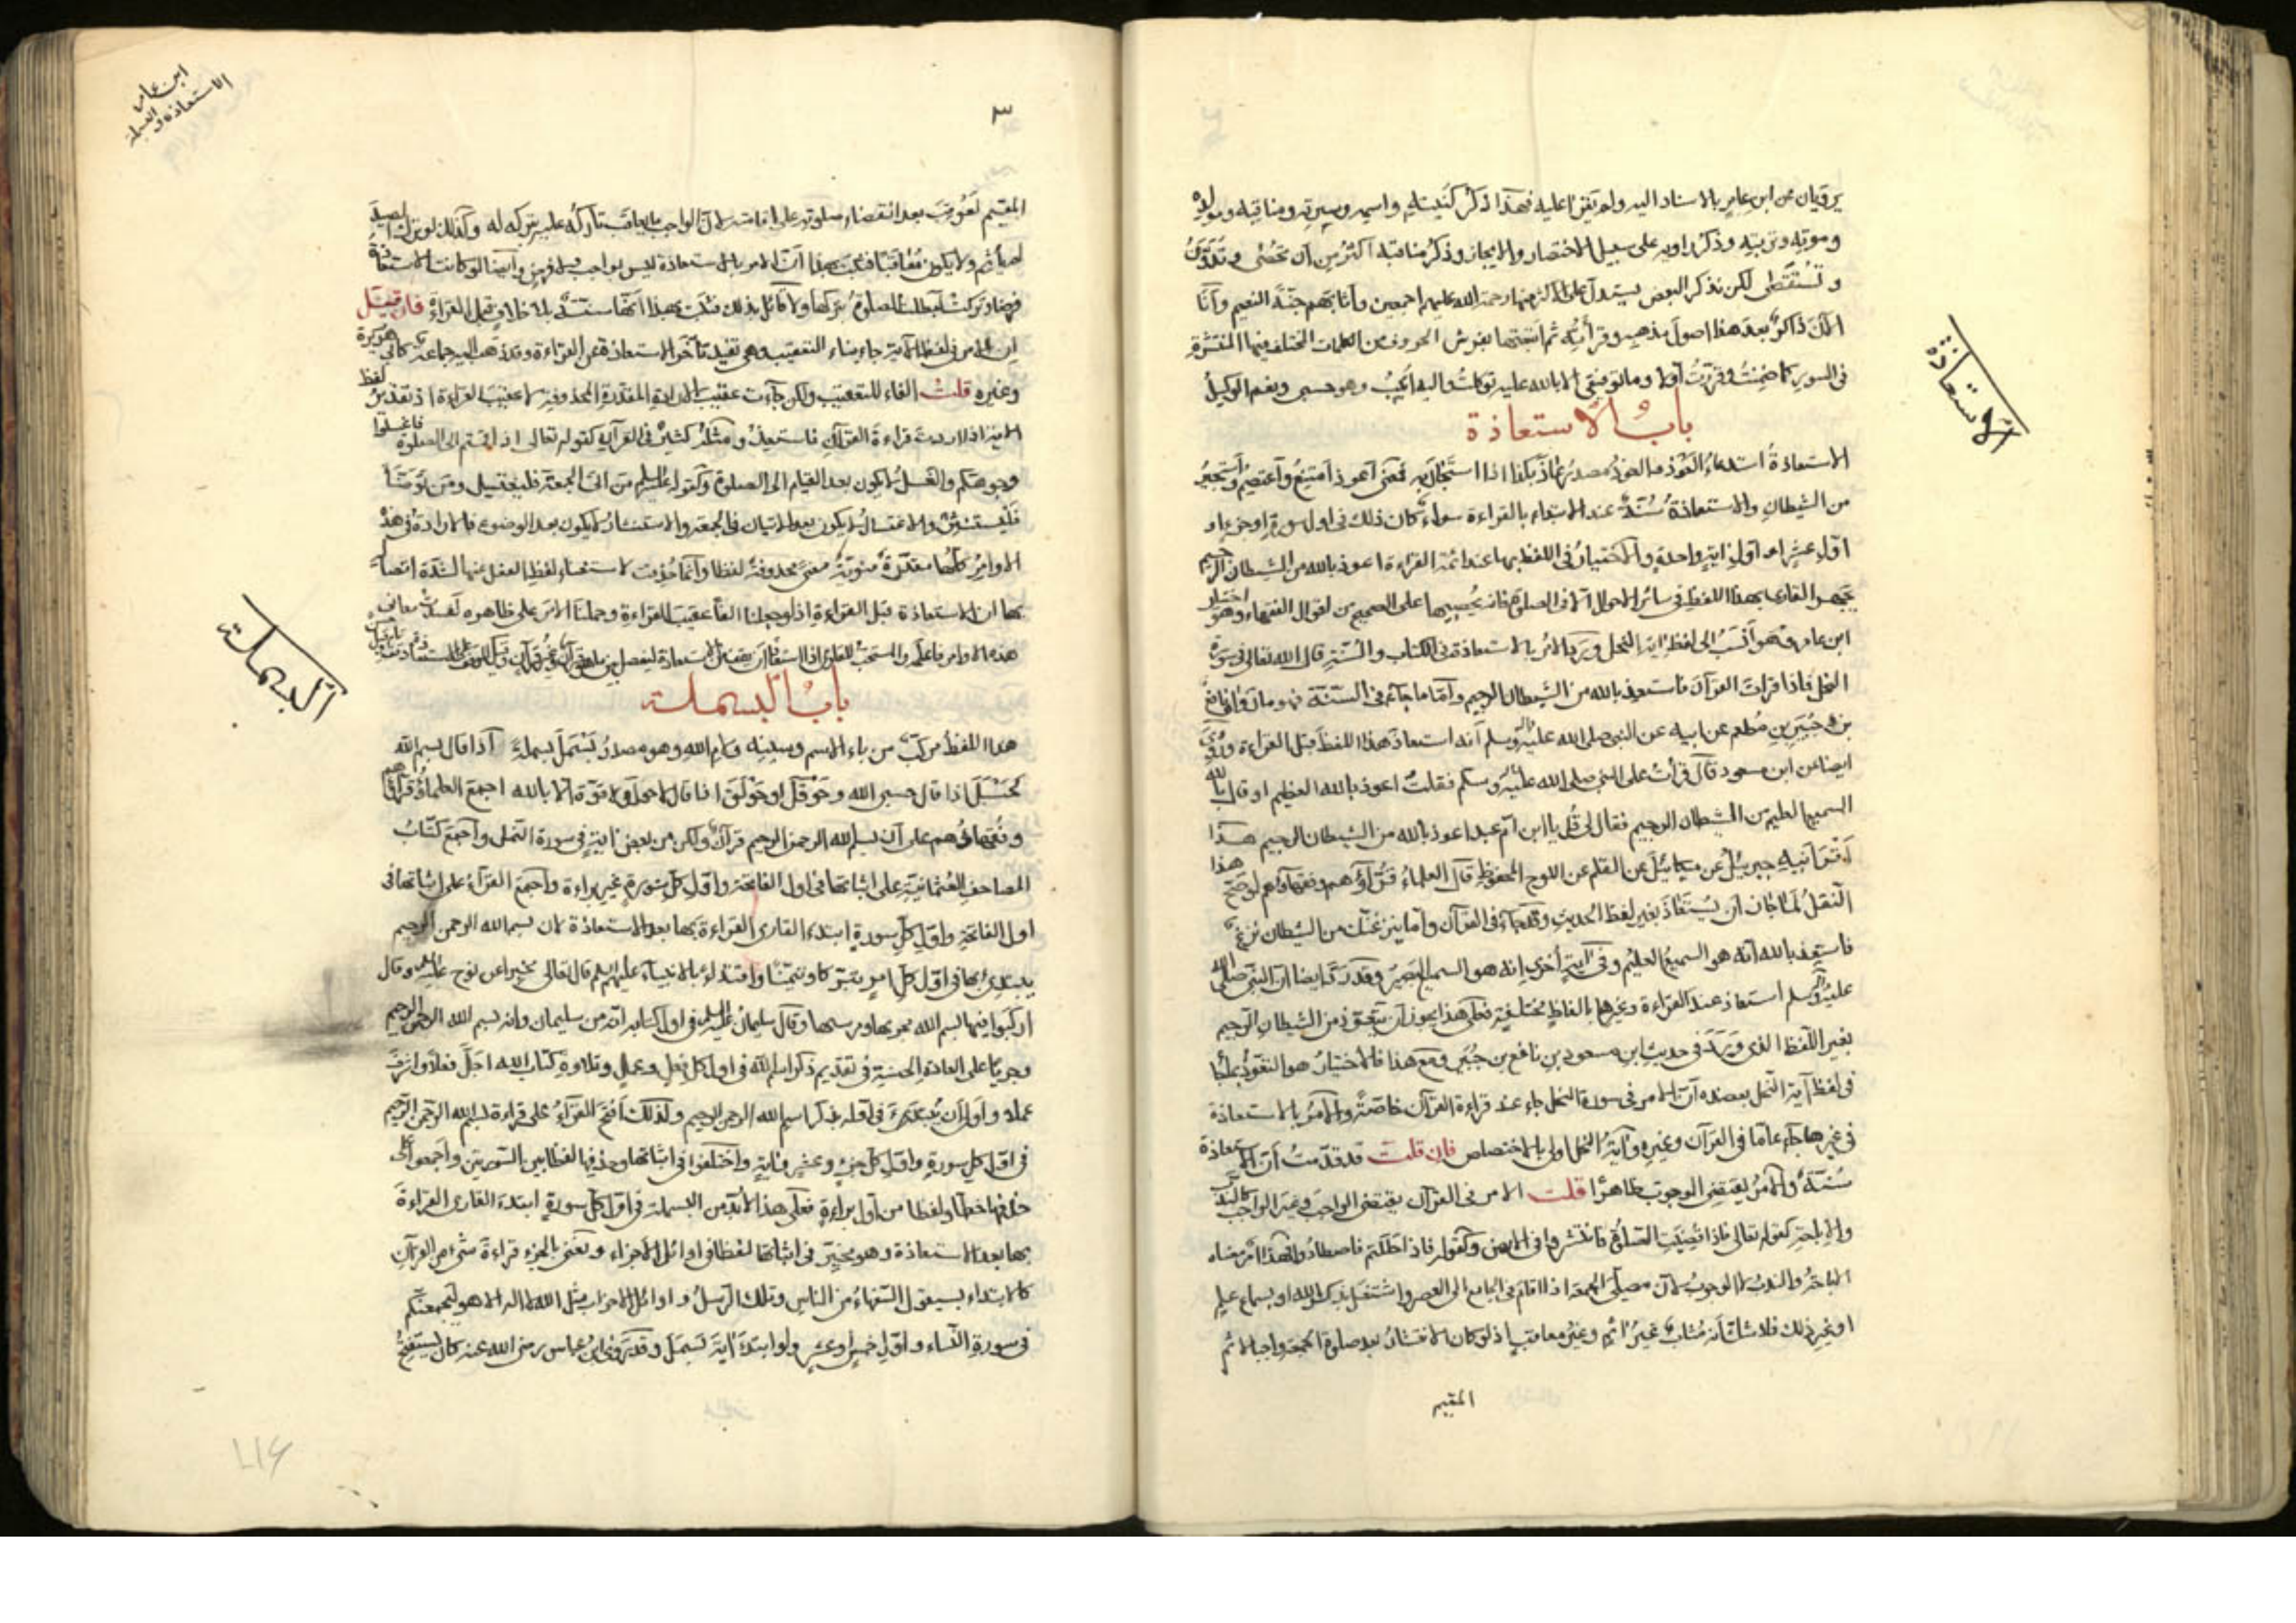 يرويان عن ابن عامر بالاسناد اليه ولم يقرا عليه فهذا ذكر كنيته واسمه وسيرته ومناقبه ومولده
وموته وتربيته وذكر راويه على سبيل الاختصار والايجاز وذكر مناقبه اكثر من ان تحصى
وتستقصى لكن نذكر البعض يستدل على الاكثر منهما رحمة الله عليهم اجمعين واثابهم جنة النعيم وانا
الان ذاكر بعد هذا اصول مذهبه وقراته ثم اتبعتها بفرش الحروف من الكلمات المختلف فيها المنتشرة
فى السور كما ضمنت وقررت اولا وما توفيقى الا بالله عليه توكلت واليه انيب وهو حسبى ونعم الوكيل
باب الاستعاذة
الاستعاذة استدعاء العوذ والعوذ مصدر عاذ بكذا اذا استجار به فمعنى اعوذ امتنع واعتصم واستجير
من الشيطان والاستعاذة سنة عند الابتداء بالقراءة سواء كان ذلك فى اول سورة او جزء او
اول عشر او اول اية واحدة والاختيار فى اللفظ بها عند ائمة القراءة اعوذ بالله من الشيطان الرجيم
يجهر القارى بهذا اللفظ فى سائر الاحوال الا فى الصلوة فانه يخفيها على الصحيح من اقوال الفقهاء وهو اختيار
ابن عامر وهو انسب الى لفظ اية النحل ويرد الامر بالاستعاذة فى الكتاب والسنة قال الله تعالى فى سورة
النحل فاذا قرات القرآن فاستعذ بالله من الشيطان الرجيم واما ما جاء فى السنة فهو ما رواه نافع
بن جبير بن مطعم عن ابيه عن النبى صلى الله عليه وآله وسلم انه استعاذ هذا اللفظ قبل القراءة وروى
ايضا عن ابن مسعود قال قرات على النبى صلى الله عليه وآله وسلم فقلت اعوذ بالله العظيم او قال بالله
السميع العليم من الشيطان الرجيم فقال لى قل يا ابن ام عبد اعوذ بالله من الشيطان الرجيم هكذا
اقرانيه جبرئيل عن ميكائيل عن القلم عن اللوح المحفوظ قال العلماء قراؤهم وفقهاؤهم لو صح هذا
النقل لما جاز ان يستعاذ بغير لفظ الحديث وقد جاء فى القرآن واما ينزغنك من الشيطان نزغ
فاستعذ بالله انه هو السميع العليم وفى اية اخرى انه هو السميع البصير وقد روى ايضا ان النبى صلى الله
عليه وآله وسلم استعاذ عند القراءة وغيرها بالفاظ مختلفة فعلى هذا يجوز ان يتعوذ من الشيطان الرجيم
بغير اللفظ الذى ورد فى حديث ابن مسعود بن نافع بن جبير ومع هذا فالاختيار هو التعوذ بما
فى لفظ آية النحل يعضده ان الامر فى سورة النحل جاء عند قراءة القرآن خاصة والامر بالاستعاذة
فى غيرها جاء عاما فى القرآن وغيره وآية النحل اولى بالاختصاص فان قلت قد قدمت ان الاستعاذة
سنة والامر يقتضى الوجوب ظاهرا قلت الامر فى القرآن يقتضى الواجب وغير الواجب كالندب
والاباحة كقوله تعالى فاذا قضيت الصلوة فانتشروا فى الارض وكقوله فاذا حللتم فاصطادوا فهذا امر معناه
الاباحة والندب لا الوجوب لان مصلى الجمعة اذا اقام فى الجامع الى العصر واشتغل بذكر الله او بسماع علم
او غير ذلك فلا شك انه مثاب غير اثم وغير معاقب اذ لو كان الانتشار بعد صلوة الجمعة واجبا لاثم
المقيم
الاستعاذة
ابن عامر
الاستعاذة والبسملة
٣
المقيم لعوقب بعد انقضاء صلوته على اقامته لان الواجب ما يعاقب تاركه على تركه له وكذلك لو ترك الصيد
لم ياثم ولا يكون معاقبا فثبت بهذا ان الامر بالاستعاذة ليس بواجب ولا فرض وايضا لو كانت الاستعاذة
فرضا وتركت لبطلت الصلوة بتركها ولا قائل بذلك فثبت بهذا انها سنة بلا خلاف قبل القراءة فان قيل
ان الامر فى لفظ الآية جاء بفاء التعقيب وهى تفيد تاخر الاستعاذة عن القراءة وقد ذهب اليه جماعة كابى هريرة
وغيره قلت الفاء للتعقيب ولكن جاءت عقيب الارادة المقدرة المحذوفة لا عقيب لفظ القراءة اذ تقدير
الاية اذا اردت قراءة القرآن فاستعذ ومثله كثير فى القرآن كقوله تعالى اذا قمتم الى الصلوة فاغسلوا
وجوهكم والغسل لا يكون بعد القيام الى الصلوة وكقوله عليه السلم من اتى الجمعة فليغتسل ومن توضأ
فليستنثر والاغتسال لا يكون بعد الاتيان فى الجمعة والاستنثار لا يكون بعد الوضوء فالارادة فى هذه
الاوامر كلها مقدرة منوية معنى محذوفة لفظا وانما حذفت لاستغناء لفظ الفعل عنها لشدة اتصاله
بها ان الاستعاذة قبل القراءة اذ لو جعلنا الفاء عقيب القراءة وحملنا الامر على ظاهره لفسدت معانى
هذه الاوامر فاعلم والمستحب للقارى اذا استعاذ ان يقف على الاستعاذة ليفصل بين ما هو قرآن وغير قرآن
باب البسملة
هذا اللفظ مركب من باء الاسم وسينه ولام الله وهو مصدر بسمل بسملة اذا قال بسم الله
كحسبل اذا قال حسبى الله وحوقل او حولق اذا قال لا حول ولا قوة الا بالله اجمع العلماء قراؤهم
وفقهاؤهم على ان بسم الله الرحمن الرحيم قرآن ولكن من بعض اية فى سورة النمل واجمع كتاب
المصاحف العثمانية على اثباتها فى اول الفاتحة واول كل سورة غير براءة واجمع القراء على اثباتها فى
اول الفاتحة واول كل سورة ابتدء القارى القراءة بها بعد الاستعاذة لان بسم الله الرحمن الرحيم
يبتدئ بها فى اول كل امر تبركا وتيمنا واقتداء بالانبياء عليهم السلم قال تعالى مخبرا عن نوح عليه السلم وقال
اركبوا فيها بسم الله مجريها ومرسيها وقال سليمان عليه السلم فى اول كتابه انه من سليمان وانه بسم الله الرحمن الرحيم
وجريا على العادة الحسنة فى تقديم ذكر اسم الله فى اول كل فعل وعمل وتلاوة كتاب الله اجل فعلا واشرف
عملا واولى ان يبتدئ فى اوله بذكر اسم الله الرحمن الرحيم ولذلك اتفق القراء على قراءة بسم الله الرحمن الرحيم
فى اول كل سورة واول كل جزء وعشر واية واختلفوا فى اثباتها وحذفها لفظا بين السورتين واجمعوا على
حذفها خطا ولفظا من اول براءة فعلى هذا لا بد من البسملة فى اول كل سورة ابتدء القارى القراءة
بها بعد الاستعاذة وهو مخير فى اثباتها لفظا فى اوائل الاجزاء ويعنى بالجزء قراءة شىء من القرآن
كالابتداء بسيقول السفهاء من الناس وتلك الرسل و اوائل الاحزاب مثل الله لا اله الا هو ليجمعنكم
فى سورة النساء واول خمس او عشر ولو ابتدء اية تسمل وقد روى ابن عباس رضى الله عنه كان يستفتح
البسملة
٤١٦